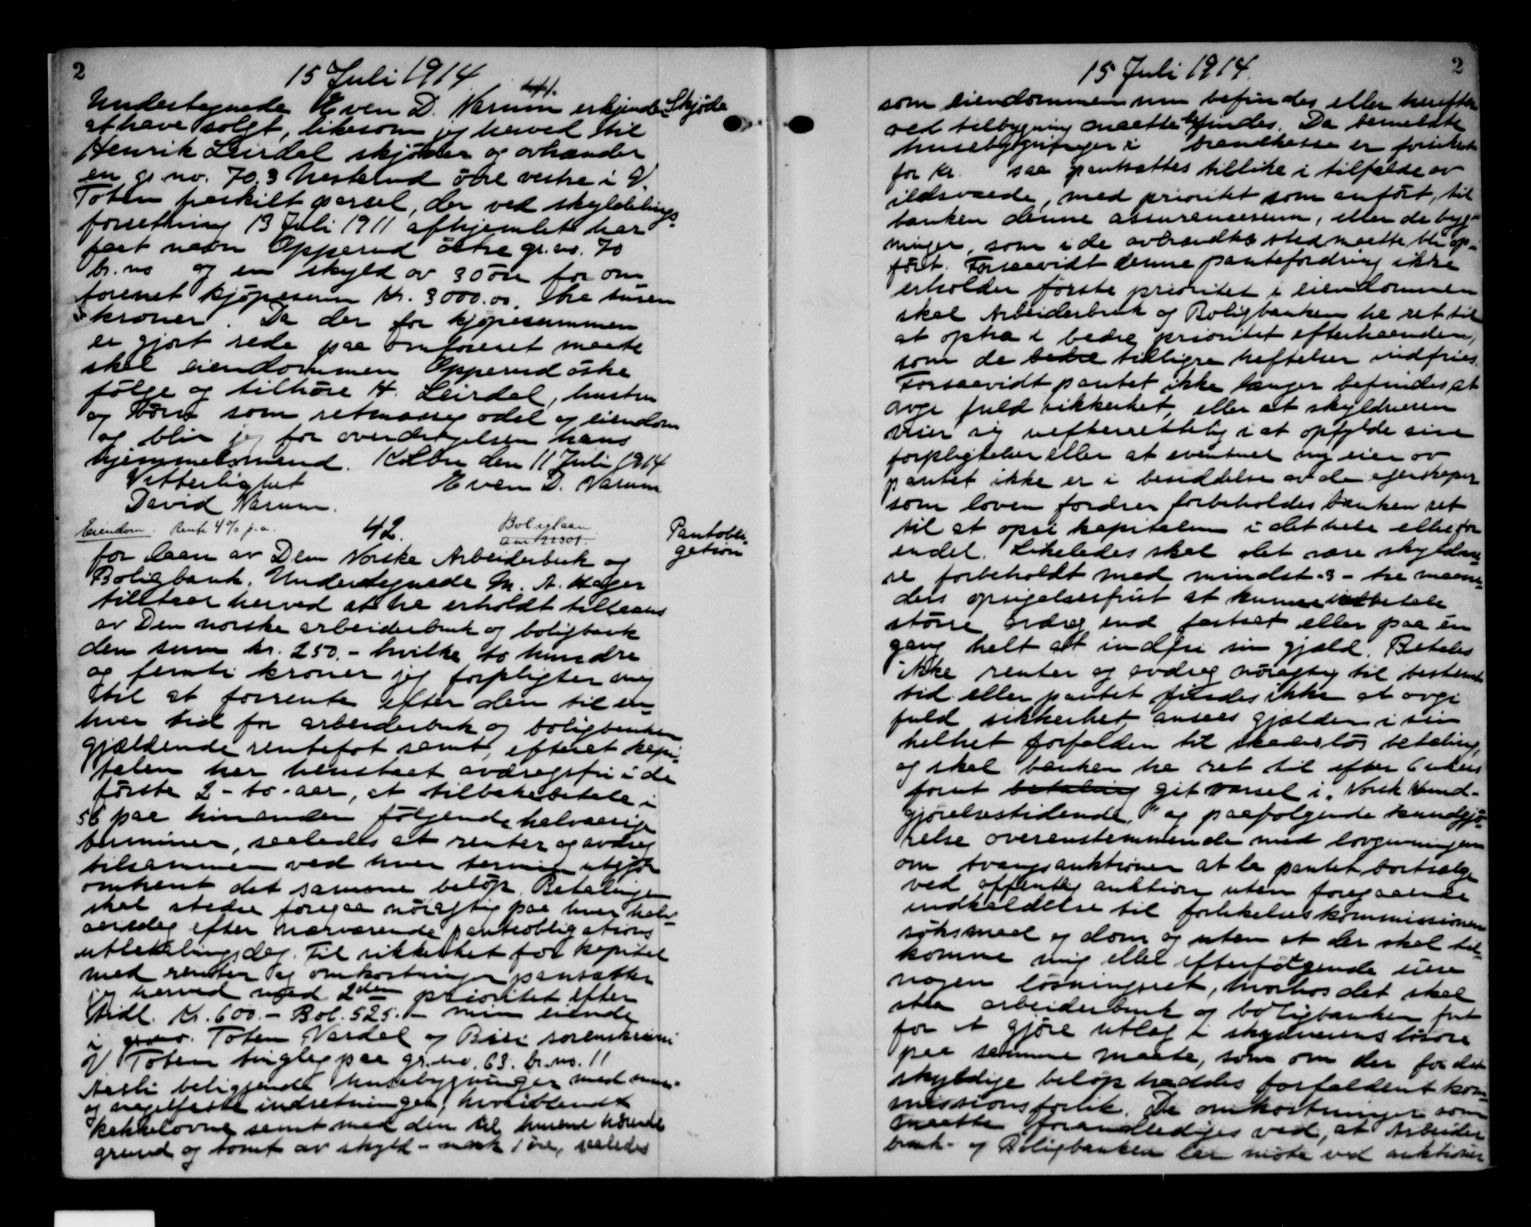 2
15 Juli 1914
41.
Skjøde
Undertegnede Even D. Narum erkjender
at have solgt, likesom jeg herved til
Henrik Leirdal skjøter og avhænder
en gr. no. 70,3 Nesterud övre vestre i V.
Toten fraskilt parsel, der ved skyldelings-
forretning 13 Juli 1911 afhjemlet har
faat navn Opperud östre gr. no. 70
br. no og en skyld av 30 öre for om
forenet kjöpesum Kr. 3000.00. tre tusen
kroner. Da der for kjöpesummen
er gjort rede paa omforenet maate
skal eiendommen Opperud östre
fölge og tilhöre H. Leirdal, hustru
og börn som retmæssig odel og eiendom
og blir jeg for overdragelsen hans
hjemmelsmand. Kolbu den 11 Juli 1914
Vitterlighet Even D. Narum
David Narum.
Eiendom. Rente 4% p.a. 42. Boliglaan
Pantobli-
gation
for laan av Den Norske Arbeiderbruk og
Boligbank. Undertegnede M. A. Hager
tilstaar herved at ha erholdt tillaans
av Den norske arbeiderbruk og boligbank
den sum kr. 250.- hvilke to hundre
og femti kroner jeg forpligter mig
til at forrente efter den til en-
hver tid for arbeiderbruk og boligbanken
gjældende rentefot samt, efterat kapi-
talen har henstaat avdragsfri i de
förste 2 - to - aar, at tilbakebetale i
56 paa hinanden fölgende halvaarige
terminer, saaledes at renter og avdrag
tilsammen ved hver termin utgjör
omtrent det samme belöp. Betalingen
skal stedse foregaa nöiagtig paa hver halv-
aarsdag efter nærværende pantobligations
utbetalingsdag. Til sikkerhet for kapital
med renter og omkostninger pantsætter
jeg herved med 2den prioritet efter
tidl. Kr. 600.- Bol. 525.- min eiende
i Toten Vardal og Biri sorenskriveri
V Toten tinglag paa gr. no. 63. br. no. 11
Aasli beliggende husebygninger med mur-
og nagelfaste indretninger, hvoriblandt
kakkelovne samt med den til husene hörende
grund og tomt av skyld - mark 1 öre, saaledes
15 Juli 1914.
2
som eiendommen nu befindes eller herefter
ved tilbygning maatte befindes. Da bemeldte
husebygninger i brandkasse er forsikret
for kr. saa pantsættes tillike i tilfælde av
ildsvaade, med prioritet som anfört, til
banken denne assurancesum, eller de byg-
ninger, som i de avbrændtes sted maatte bli op-
fört. Forsaavidt denne pantefordring ikke
erholder förste prioritet i eiendommen
skal Arbeiderbruk og Boligbanken ha ret til
at optra i bedre prioritet efterhaanden,
som de tidligre heftelser indfries.
Forsaavidt pantet ikke længer befindes at
avgi fuld sikkerhet, eller at skyldneren
viser sig uefterrettelig i at opfylde sine
forpligtelser eller at eventuel ny eier av
pantet ikke er i besiddelse av de egenskaper
som loven fordrer forbeholdes banken ret
til at opsi kapitalen i det hele eller for
endel. Likeledes skal det være skyldne-
re forbeholdt med mindst -3- tre maane-
ders opsigelsesfrist at kunne utbetale
större avdrag end fastsat eller paa én
gang helt at indfri sin gjæld. Betales
ikke renter og avdrag nöiagtig til bestemt
tid eller pantet findes ikke at avgi
fuld sikkerhet ansees gjælden i sin
helhet forfalden til skadeslös betaling,
og skal banken ha ret til efter 6 ukers
forut betaling git varsel i "Norsk Kund-
gjörelsestidende" og paafölgende kundgjö-
relse overensstemmende med lovgivningen
om tvangsauktioner at la pantet bortsælge
ved offentlig auktion uten foregaaende
indkaldelse til forlikelseskommissionen
söksmaal og dom og uten at der skal til-
komme mig eller efterfölgende eiere
nogen lösningsret, hvorhos det skal
staa arbeiderbruk og boligbanken frit
for at gjöre utlæg i skyldnerens lösöre
paa samme maate, som om der for det
skyldige belöp haddes forfaldent kom-
missionsforlik. De omkostninger som
maatte foranlediges ved, at Arbeider
bruk- og Boligbanken lar möte ved auktioner